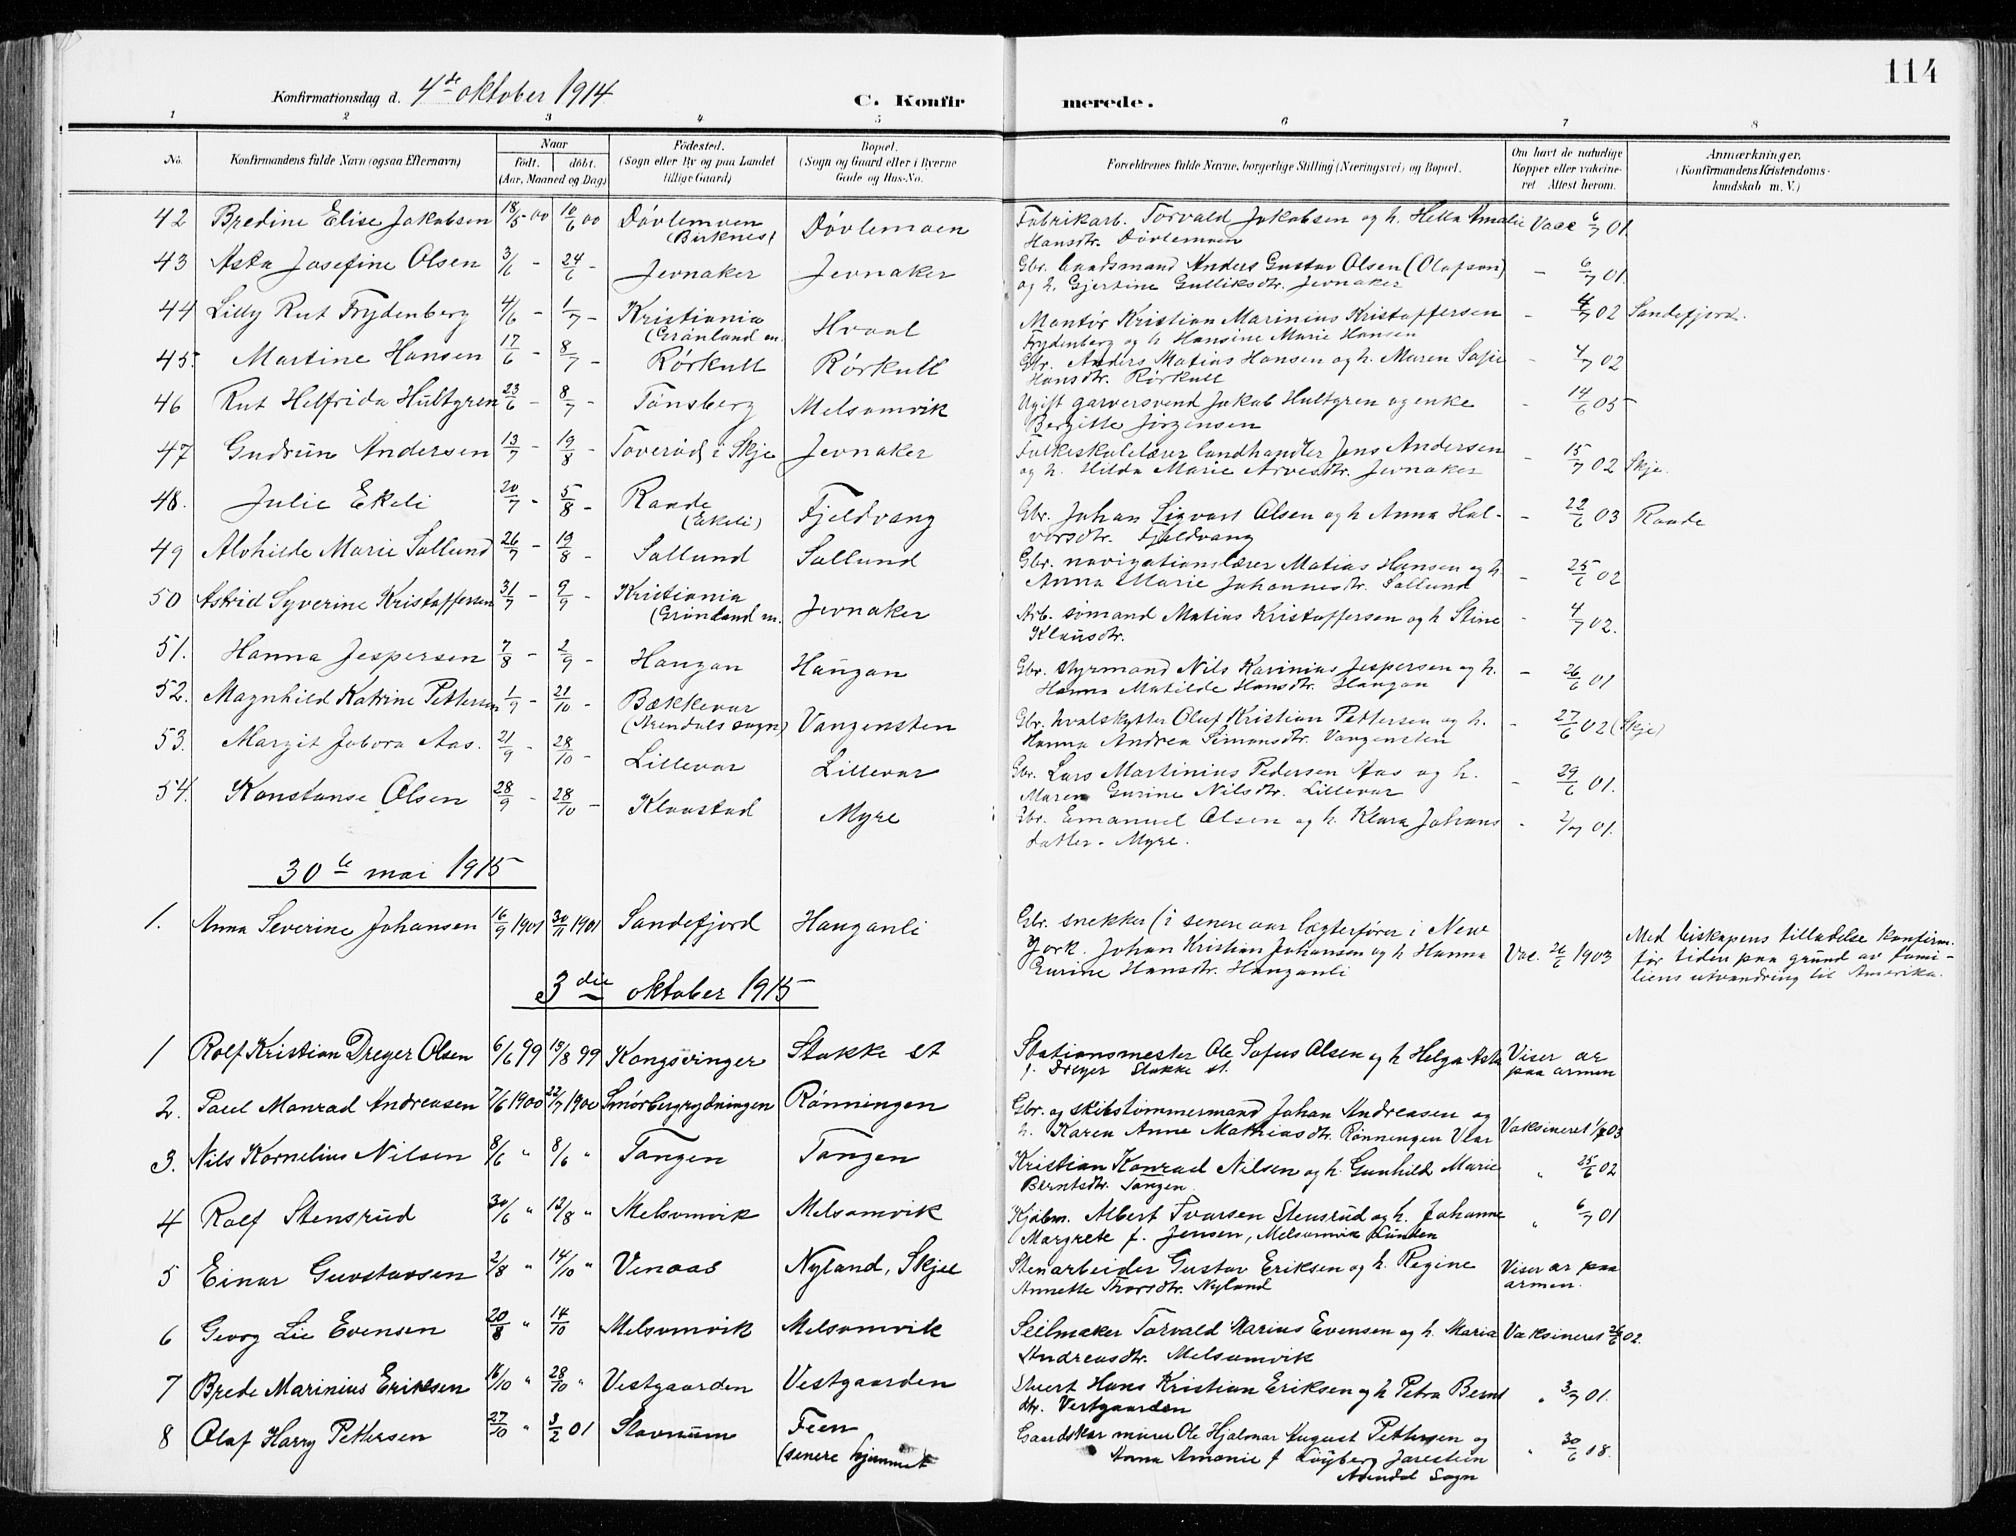 114
Konfirmationsdag d. 4de oktober 1914 C. Konfirmerede.
1 2 3 4 5 6 7 8
No. Konfirmandens fulde Navn (ogsaa Efternavn) Naar födt. döbt. (Aar, Maaned og Dag) Födested. (Sogn eller By og paa Landet tillige Gaard) Bopæl. (Sogn og Gaard eller i Byerne Gade og Hus-No. Forældrenes fulde Navne, borgerlige Stilling (Næringsvei) og Bopæl. Om havt de naturlige Kopper eller vakcineret. Attest herom. Anmærkninger. (Konfirmandens Kristendomskundskab m. V.)
42 Bredine Elise Jakobsen 18/5 00 10/6 00 Døvlemoen (Birknes) Døvlemoen Fabrikarb. Torvald Jakobsen og h. Hella Amalie Hansdtr. Døvlemoen Vacc 6/7 01.
43 Asta Josefine Olsen 3/6 - 24/6 - Jevnaker Jevnaker Gbr. baadsmand Anders Gustav Olsen (Olafson) og h. Gjertine Gulliksdtr. Jevnaker - 6/7 01.
44 Lilly Rut Frydenberg 4/6 - 1/7 - Kristiania (Grønland m. Hvaal Montør Kristian Marinius Kristoffersen Frydenberg og h Hansine Marie Hansen - 4/7 02 Sandefjord.
45. Martine Hansen 17/6 - 8/7 - Rørkull Rørkull Gbr. Anders Matias Hansen og h. Maren Sofie Hansdtr. Rørkull - 4/7 02
46 Rut Helfrida Hultgren 23/6 - 8/7 - Tønsberg Melsomvik Ugift garversvend Jakob Hultgren og enke Bergitte Jørgensen - 14/6 05
47 Gudrun Andersen 13/7 - 19/8 - Toverød i Skje Jevnaker Folkeskolelærer landhandler Jens Andersen og h. Hilda Marie Arvesdtr. Jevnaker - 15/7 02 Skje.
48. Julie Ekeli 20/7 - 5/8 - Raade (Ekeli) Fjeldvang Gbr. Johan Sigvart Olsen og h Anna Halvorsdtr. Fjeldvang - 22/6 03 Raade
49 Alvhilde Marie Sollund 26/7 - 19/8 - Sollund Sollund Gbr. navigationslærer Matias Hansen og h. Anna Marie Johannesdtr. Sollund - 25/6 02
50 Astrid Syverine Kristoffersen 31/7 - 9/9 - Kristiania (Grønland m. Jevnaker Arb. sømand Matias Kristoffersen og h Stine Klausdtr. - 4/7 02.
51. Hanna Jespersen 7/8 - 2/9 - Haugan Haugan Gbr. styrmand Nils Karinius Jespersen og h. Hanna Matilde Hansdtr. Haugan - 26/6 01
52. Magnhild Katrine Pettersen 1/9 - 21/10 - Bækkevar (Arendals sogn) Vangensten Gbr. hvalskytter Oluf Kristian Pettersen og h. Hanna Andrea Simonsdtr. Vangensten - 27/6 02 (Skje)
53. Margit Jobora Aas. 21/9 - 28/10 - Lillevar Lillevar Gbr. Lars Martinius Pedersen Aas og h. Maren Gurine Nilsdtr. Lillevar - 29/6 01.
54. Konstanse Olsen 28/9 - 28/10 - Klavstad Myre Gbr. Emanuel Olsen og h. Klara Johansdatter. Myre. - 2/7 01.
30te mai 1915
1. Anna Severine Johansen 16/9 1901 30/11 1901 Sandefjord Hauganli Gbr. snekker (i senere aar lægterfører i New York. Johan Kristian Johansen og h Hanna Gurine Hansdtr. Hauganli Vac. 26/6 1903 Med biskopens tilladelse konfirm. før tiden paa grund av familiens utvandring til Amerika.
3die oktober 1915
1 Rolf Kristian Dreyer Olsen 6/6 99 13/8 99 Kongsvinger Stokke st Stationsmester Ole Sofus Olsen og h Helga Asta f. Dreyer Stokke st. Viser ar paa armen
2. Paul Monrad Andreasen 7/6 1900 22/7 1900 Smørbergrydningen Rønningen Gbr. og skibstømmermand Johan Andreasen og h. Karen Anne Mathiasdtr. Rønningen Vear Vaksineret 1/7 03
3. Nils Kornelius Nilsen 8/6 " 8/6 " Tangen Tangen Kristian Konrad Nilsen og h. Gunhild Marie Berntsdtr. Tangen. " 25/6 02
4 Rolf Stensrud 30/6 " 12/8 " Melsomvik Melsomvik Kjøbm. Albert Ivarsen Stensrud og h. Johanne Margrete f. Jensen, Melsomvik Lunden " 6/7 01
5 Einar Gustavsen 2/8 " 14/10 " Venaas Nyland, Skjee Stenarbeider Gustav Eriksen og h. Regine Annette Thorsdtr. Nyland Viser ar paa armen.
6 Georg Lie Evensen 20/8 " 14/10 Melsomvik Melsomvik Seilmaker Torvald Marius Evensen og h. Maria Andreasdtr. Melsomvik Vaksineret 26/6 02.
7 Brede Marinius Eriksen 16/10 " 28/10 " Vestgaarden Vestgaarden Stuert Hans Kristian Eriksen og h Petra Berntdtr. Vestgaarden " 3/7 01.
8 Olaf Harry Pettersen 27/10 " 3/2 01 Stavnum Feen (senere hjemmet Gaardskar murer Ole Hjalmar August Pettersen og Anna Amanie f Løyberg Jarestein Arendal Sogn " 30/6 08.